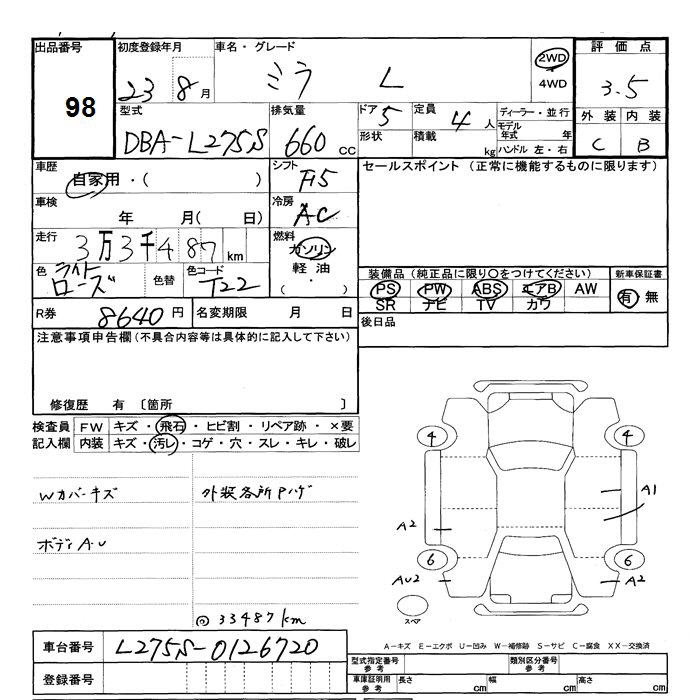 出品番号 初度登録年月 車名・グレード 評価点
98 23 8月 ミラ L 2WD 4WD 3.5
型式 排気量 ドア 5 定員 4人 ディーラー・並行 外装 内装
DBA-L275S 660cc 形状 積載 kg モデル年式 年 C B
ハンドル 左・右
車歴 シフト セールスポイント (正常に機能するものに限ります)
自家用・( ) F5
車検 冷房
年 月( 日) AC
走行 燃料
3万3千487km ガソリン
色 色替 色コード 軽油 装備品(純正品に限り〇をつけてください) 新車保証書
ライトローズ T22 ( ・ ) PS PW ABS エアB AW 有 無
SR ナビ TV カワ
R券 8640円 名変期限 月 日 後日品
注意事項申告欄(不具合内容等は具体的に記入して下さい)
修復歴 有 〔箇所 〕
検査員 FW キズ・飛石・ヒビ割・リペア跡・×要
記入欄 内装 キズ・汚レ・コゲ・穴・スレ・キレ・破レ
4 4
Wカバーキズ 外装各所Pハゲ A1
A2
ボディA・U
6 6
AU2 A2
スペア
◎33487km
A-キズ E-エクボ U-凹み W-補修跡 S-サビ C-腐食 XX-交換済
車台番号 L275S-0126720
型式指定番号 参考 類別区分番号 参考
登録番号 車庫証明用 参考 長さ cm 幅 cm 高さ cm